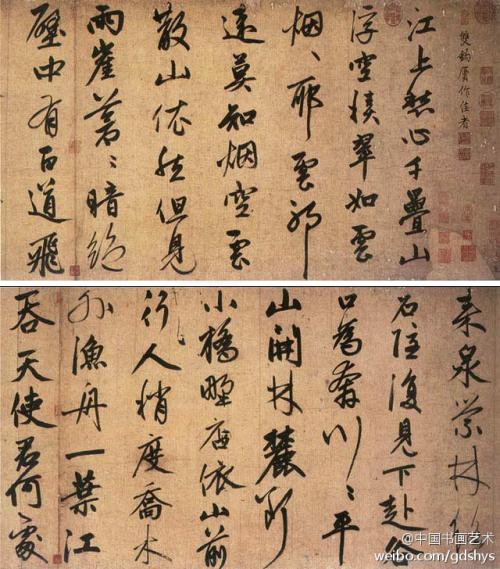 雙鈎贋作佳者
江上愁心千疊山
浮空積翠如雲
烟〻耶雲耶
遠莫知烟空雲
散山依然但見
兩崖蒼〻暗絶
壁中有百道飛
来泉縈林絡
石隱復見下赴谷
口為奔川〻平
山開林麓斷
小橋野店依山前
行人稍度喬木
外漁舟一葉江
吞天使君何處
@中国书画艺术
weibo.com/gdshys